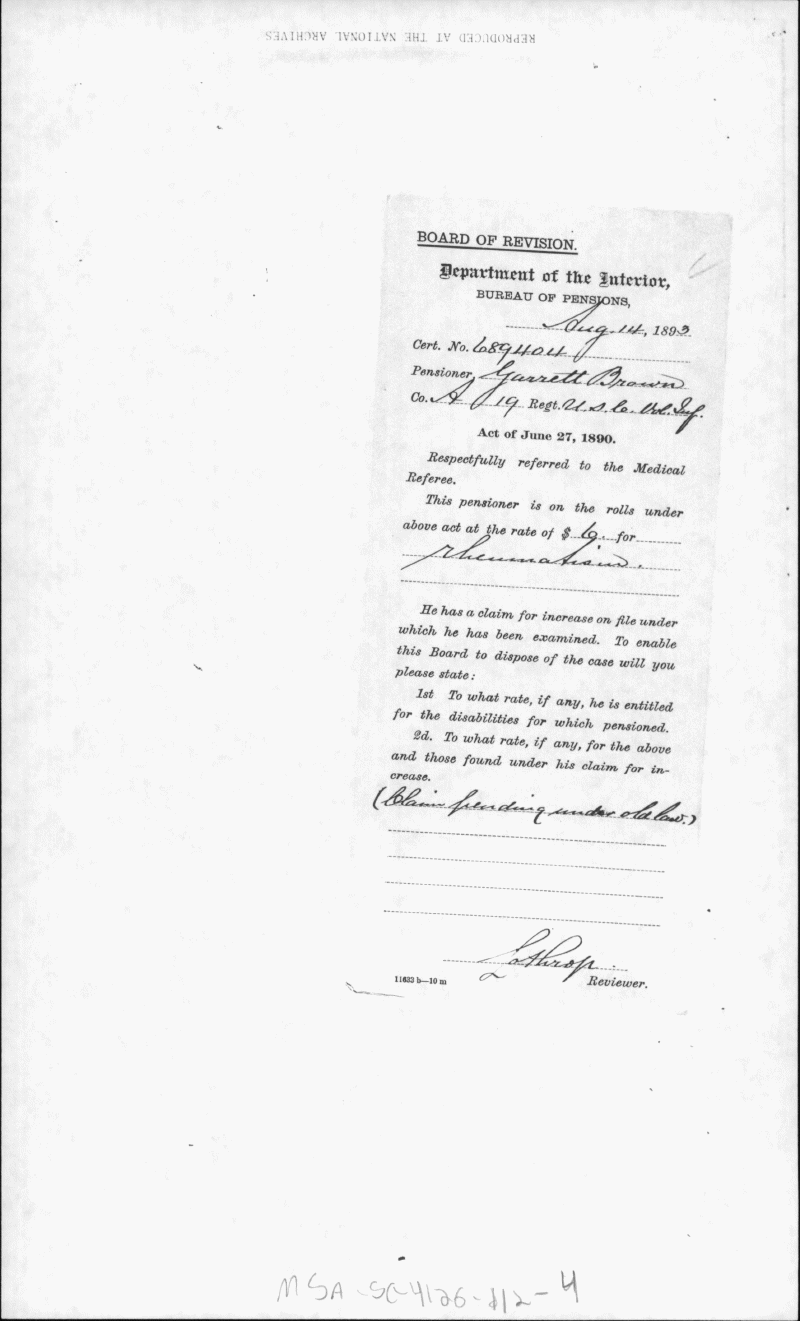 REPRODUCED AT THE NATIONAL ARCHIVES
BOARD OF REVISION.
Department of the Interior,
BUREAU OF PENSIONS,
Aug. 14, 1893
Cert. No. 689404
Pensioner, Garrett Brown
Co. A 19 Regt. U.S.C. Vol. Inf.
Act of June 27, 1890.
Respectfully referred to the Medical
Referee.
This pensioner is on the rolls under
above act at the rate of $ 6 for
rheumatism.
He has a claim for increase on file under
which he has been examined. To enable
this Board to dispose of the case will you
please state:
1st To what rate, if any, he is entitled
for the disabilities for which pensioned.
2d. To what rate, if any, for the above
and those found under his claim for in-
crease.
(Claim pending under old law.)
Lothrop.
11633 b—10 m Reviewer.
MSA-SC-4126-112-4